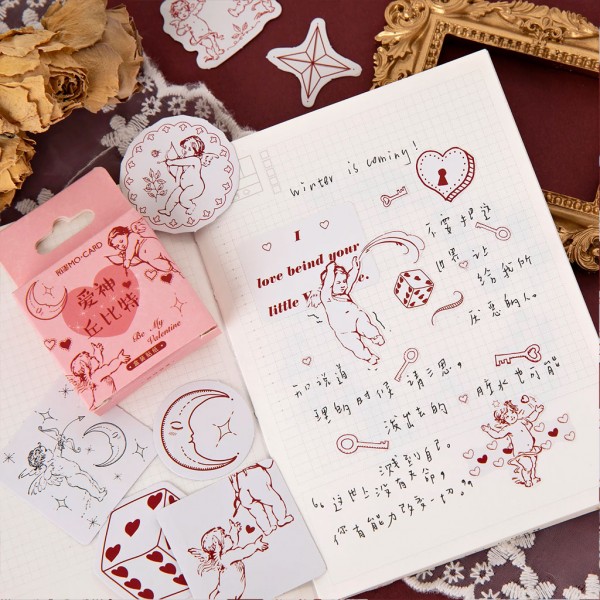 MO·CARD
爱神
丘比特
Be My
Valentine
Winter is coming!
I
love beind your
little
不要把这
世界 让
给我所
厌恶的人。
说道
理的时候 请三思，
脏水也可能
泼出去的
溅到自己。
“这世上没有天命，
你有能力改变一切。”